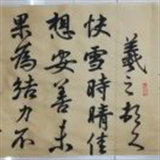 羲之頓首
快雪時晴佳
想安善未
果為結力不